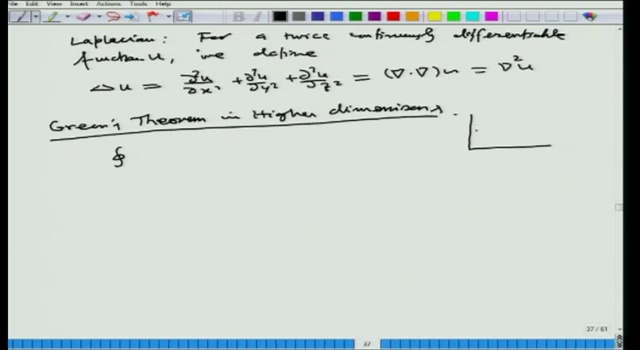 File Edit View Insert Actions Tools Help
Laplacian: For a twice continuously differentiable
function u, we define
Δu = ∂²u/∂x² + ∂²u/∂y² + ∂²u/∂z² = (∇·∇)u = ∇²u
Green's Theorem in Higher dimensions.
∮
37 / 61
37